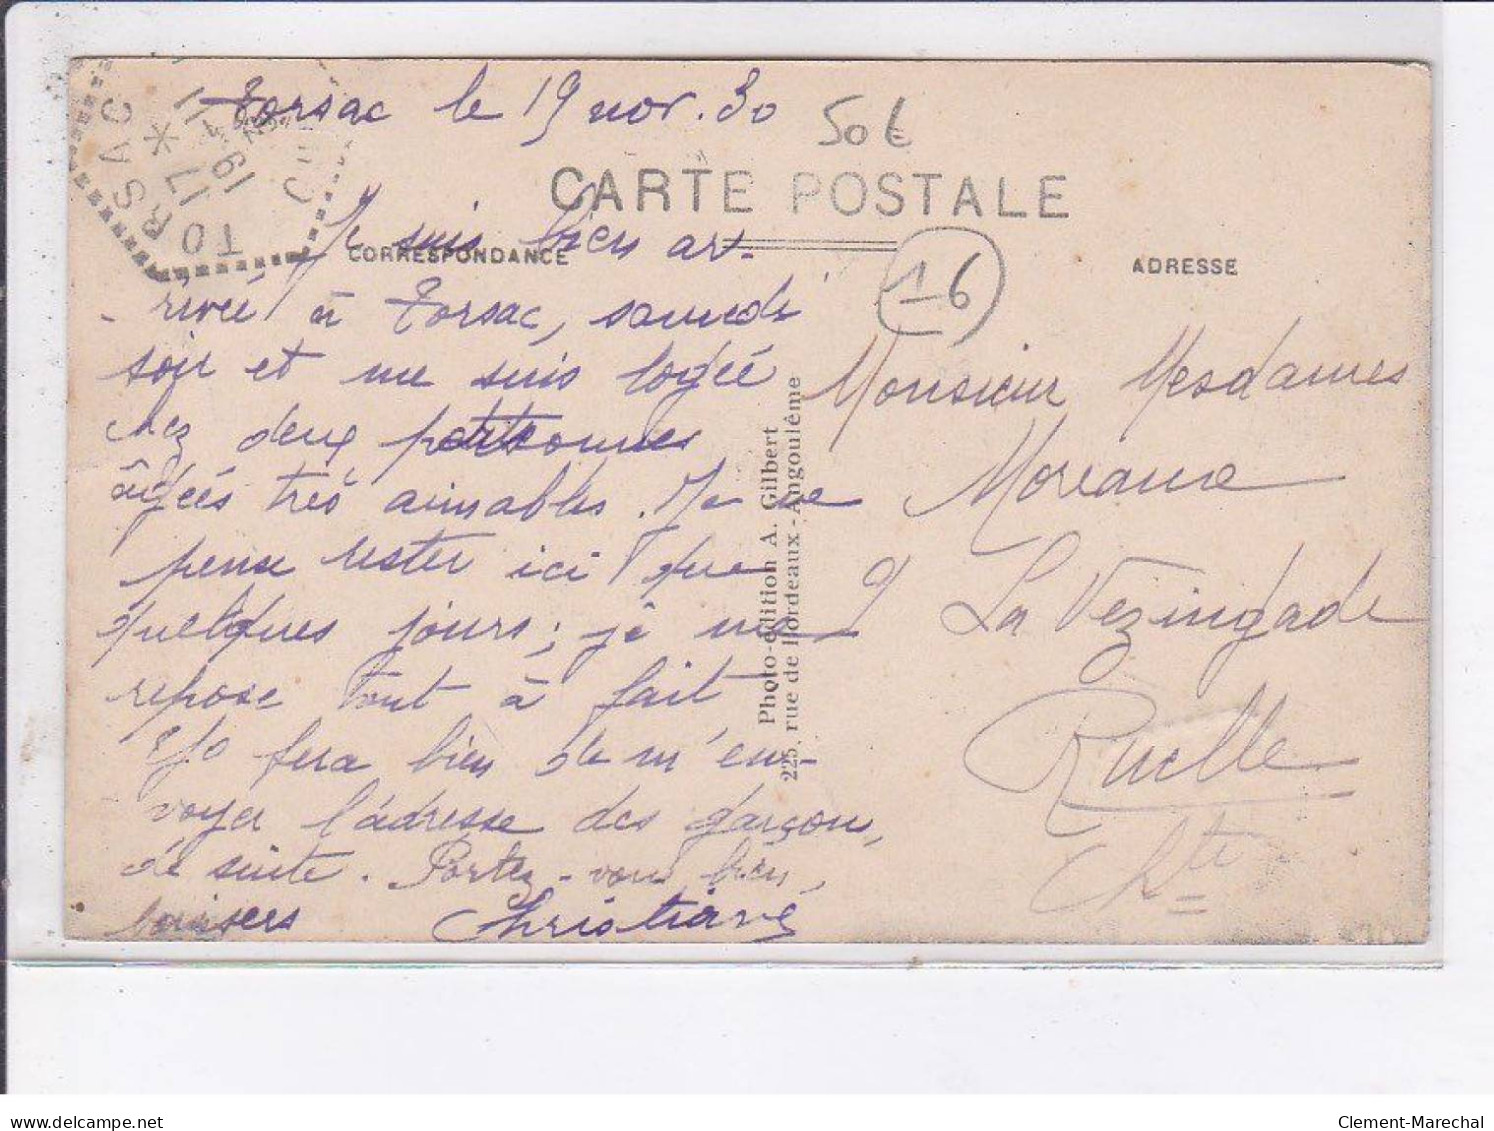 Torsac le 19 nov. 30
50 €
TORSAC
17
19
CARTE POSTALE
CORRESPONDANCE
ADRESSE
16
Je suis bien ar-
-rivée à Torsac, samedi
soir et me suis logée
chez deux personnes
âgées très aimables. Je ne
pense rester ici que
quelques jours; je me
repose tout à fait
fera bien de m'en-
voyer l'adresse des garçons,
de suite. Portez-vous bien,
baisers Christiane
Photo-édition A. Gilbert
225, rue de Bordeaux - Angoulême
Monsieur Mesdames
La Vezingade
Ruelle
Chte
Clement-Marechal
www.delcampe.net